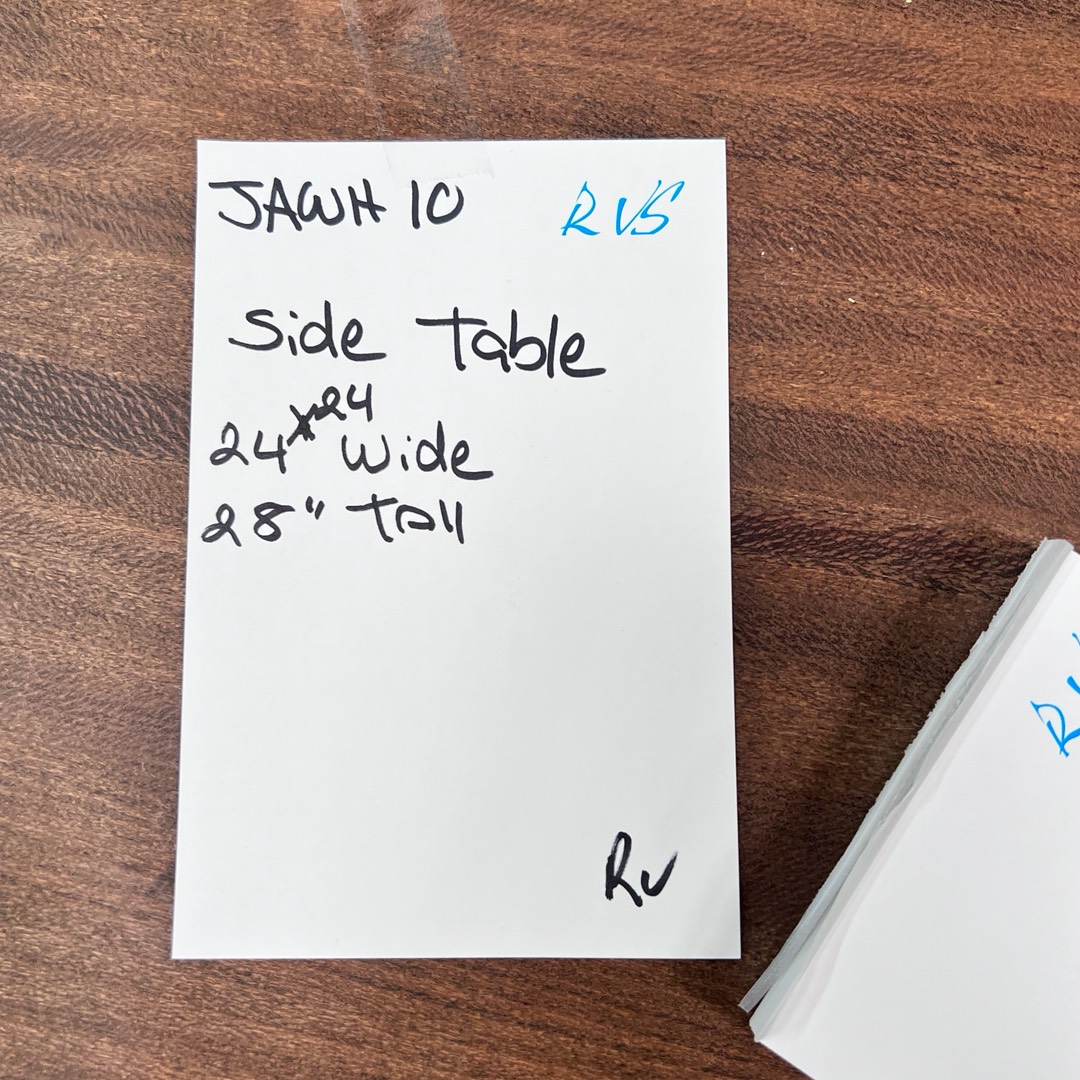 JAWH 10 RVS
Side Table
24 x 24 Wide
28" Tall
RV
RV